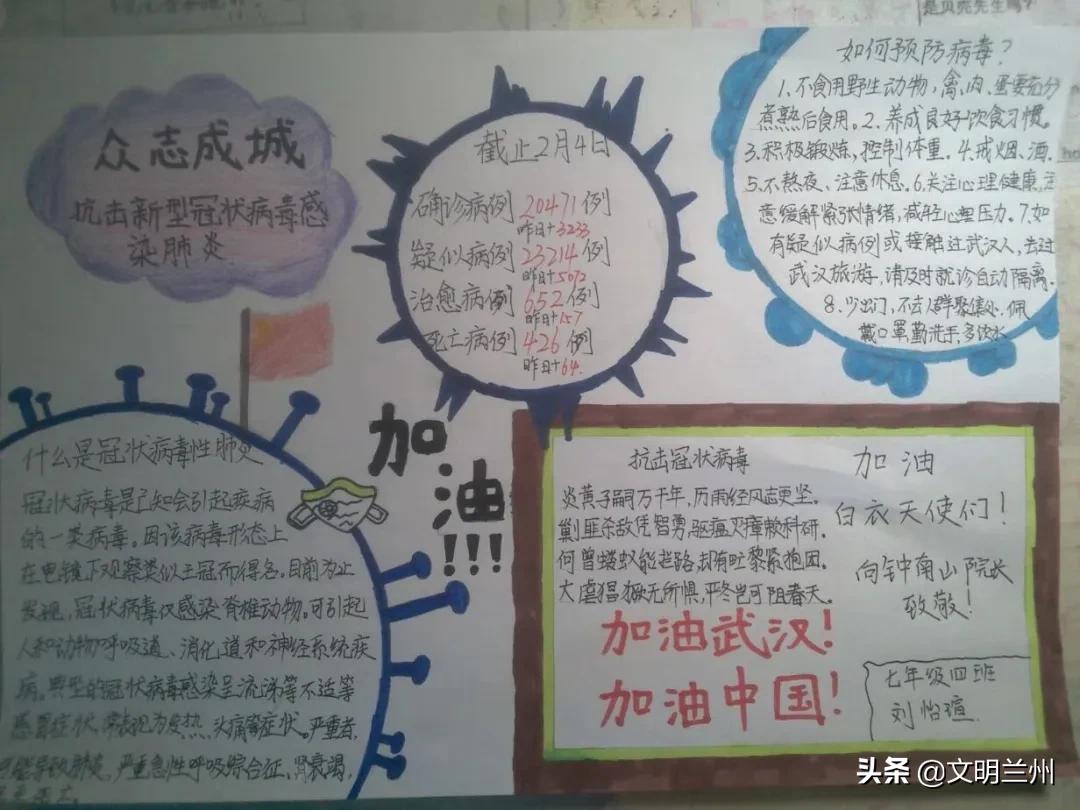 是贝壳先生吗?
众志成城
抗击新型冠状病毒感
染肺炎
截止2月4日
确诊病例20471例
昨日+3233
疑似病例23214例
昨日+5072
治愈病例652例
昨日+157
死亡病例426例
昨日+64.
如何预防病毒?
1、不食用野生动物,禽、肉、蛋要充分
煮熟后食用。2、养成良好饮食习惯。
3、积极锻炼,控制体重。4、戒烟、酒.
5、不熬夜、注意休息。6、关注心理健康,注
意缓解紧张情绪,减轻心理压力。7、如
有疑似病例或接触过武汉人,去过
武汉旅游,请及时就诊自动隔离.
8、少出门,不去人群聚集处、佩
戴口罩勤洗手,多饮水
什么是冠状病毒性肺炎
冠状病毒是已知会引起疾病
的一类病毒。因该病毒形态上
在电镜下观察类似王冠而得名。目前为止
发现,冠状病毒仅感染脊椎动物。可引起
人和动物呼吸道、消化道和神经系统疾
病。典型的冠状病毒感染呈流涕等不适等
感冒症状,常表现为发热,头痛等症状。严重者,
可能导致肺炎,严重急性呼吸综合征、肾衰竭,
加油!!!
抗击冠状病毒
炎黄子嗣万千年,历雨经风志更坚。
剿匪杀敌凭智勇,驱瘟灭瘴赖科研。
何曾蝼蚁能拦路,却有吐黎紧抱团。
大虐猖獗无所惧,严冬岂可阻春天。
加油武汉!
加油中国!
加油
白衣天使们!
向钟南山院长
致敬!
七年级四班
刘怡瑄
头条 @文明兰州